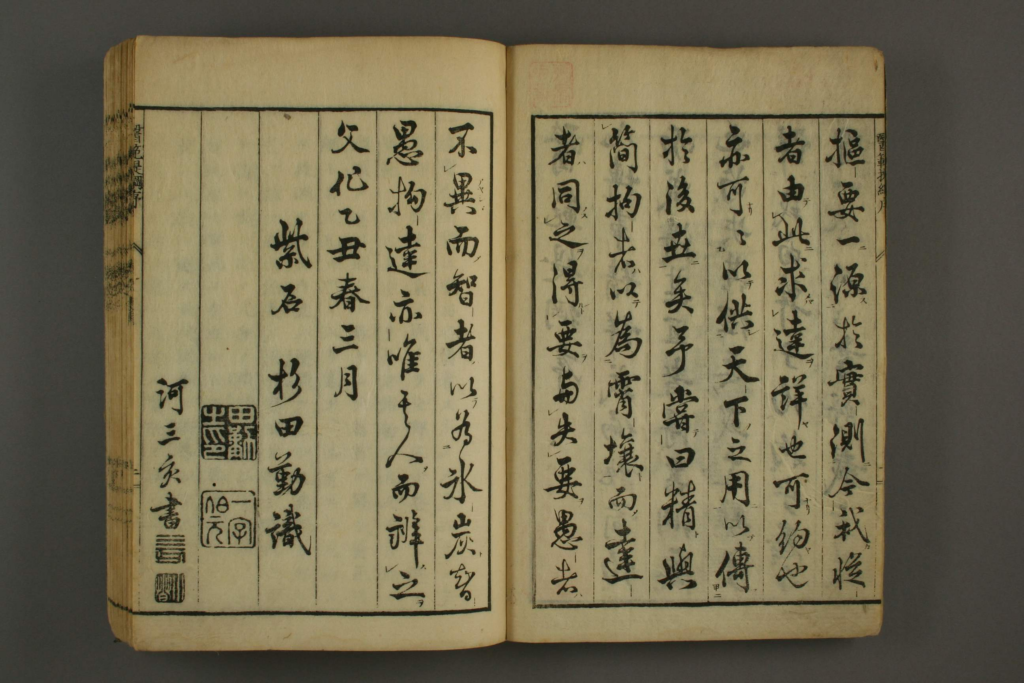 醫範提綱序
樞要一源於實測今我從
者由此求達詳也可約也
亦可〻以供天下之用以傳
於後世矣予嘗曰精與
簡拘者以為霄壤而達
者同之得要與失要愚者
不異而智者以為氷炭智
愚拘達亦唯其人而之
文化乙丑春三月
紫石 杉田勤識
田勤之印
一字伯元
河三亥書
醫範提綱序